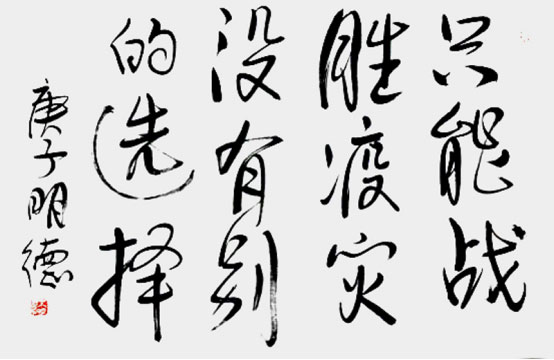 只能战
胜疫灾
没有别
的选择
庚子明德